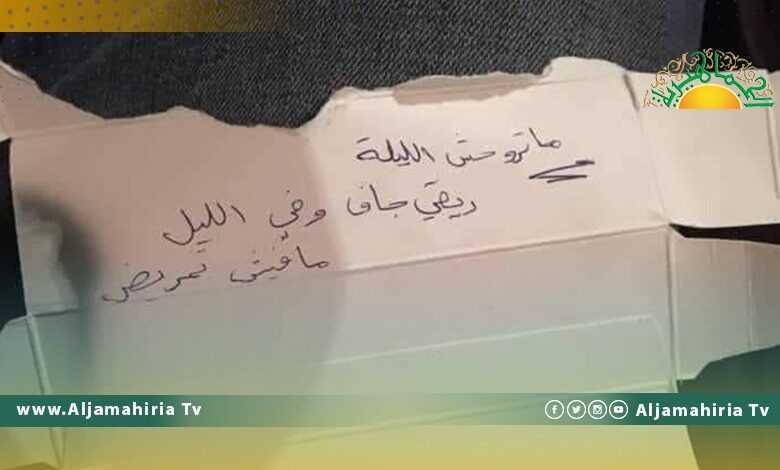 الجماهيرية
ماتروحش الليلة
ريقي جاف وفي الليل
مافيش تمريض
www.Aljamahiria Tv
Aljamahiria Tv